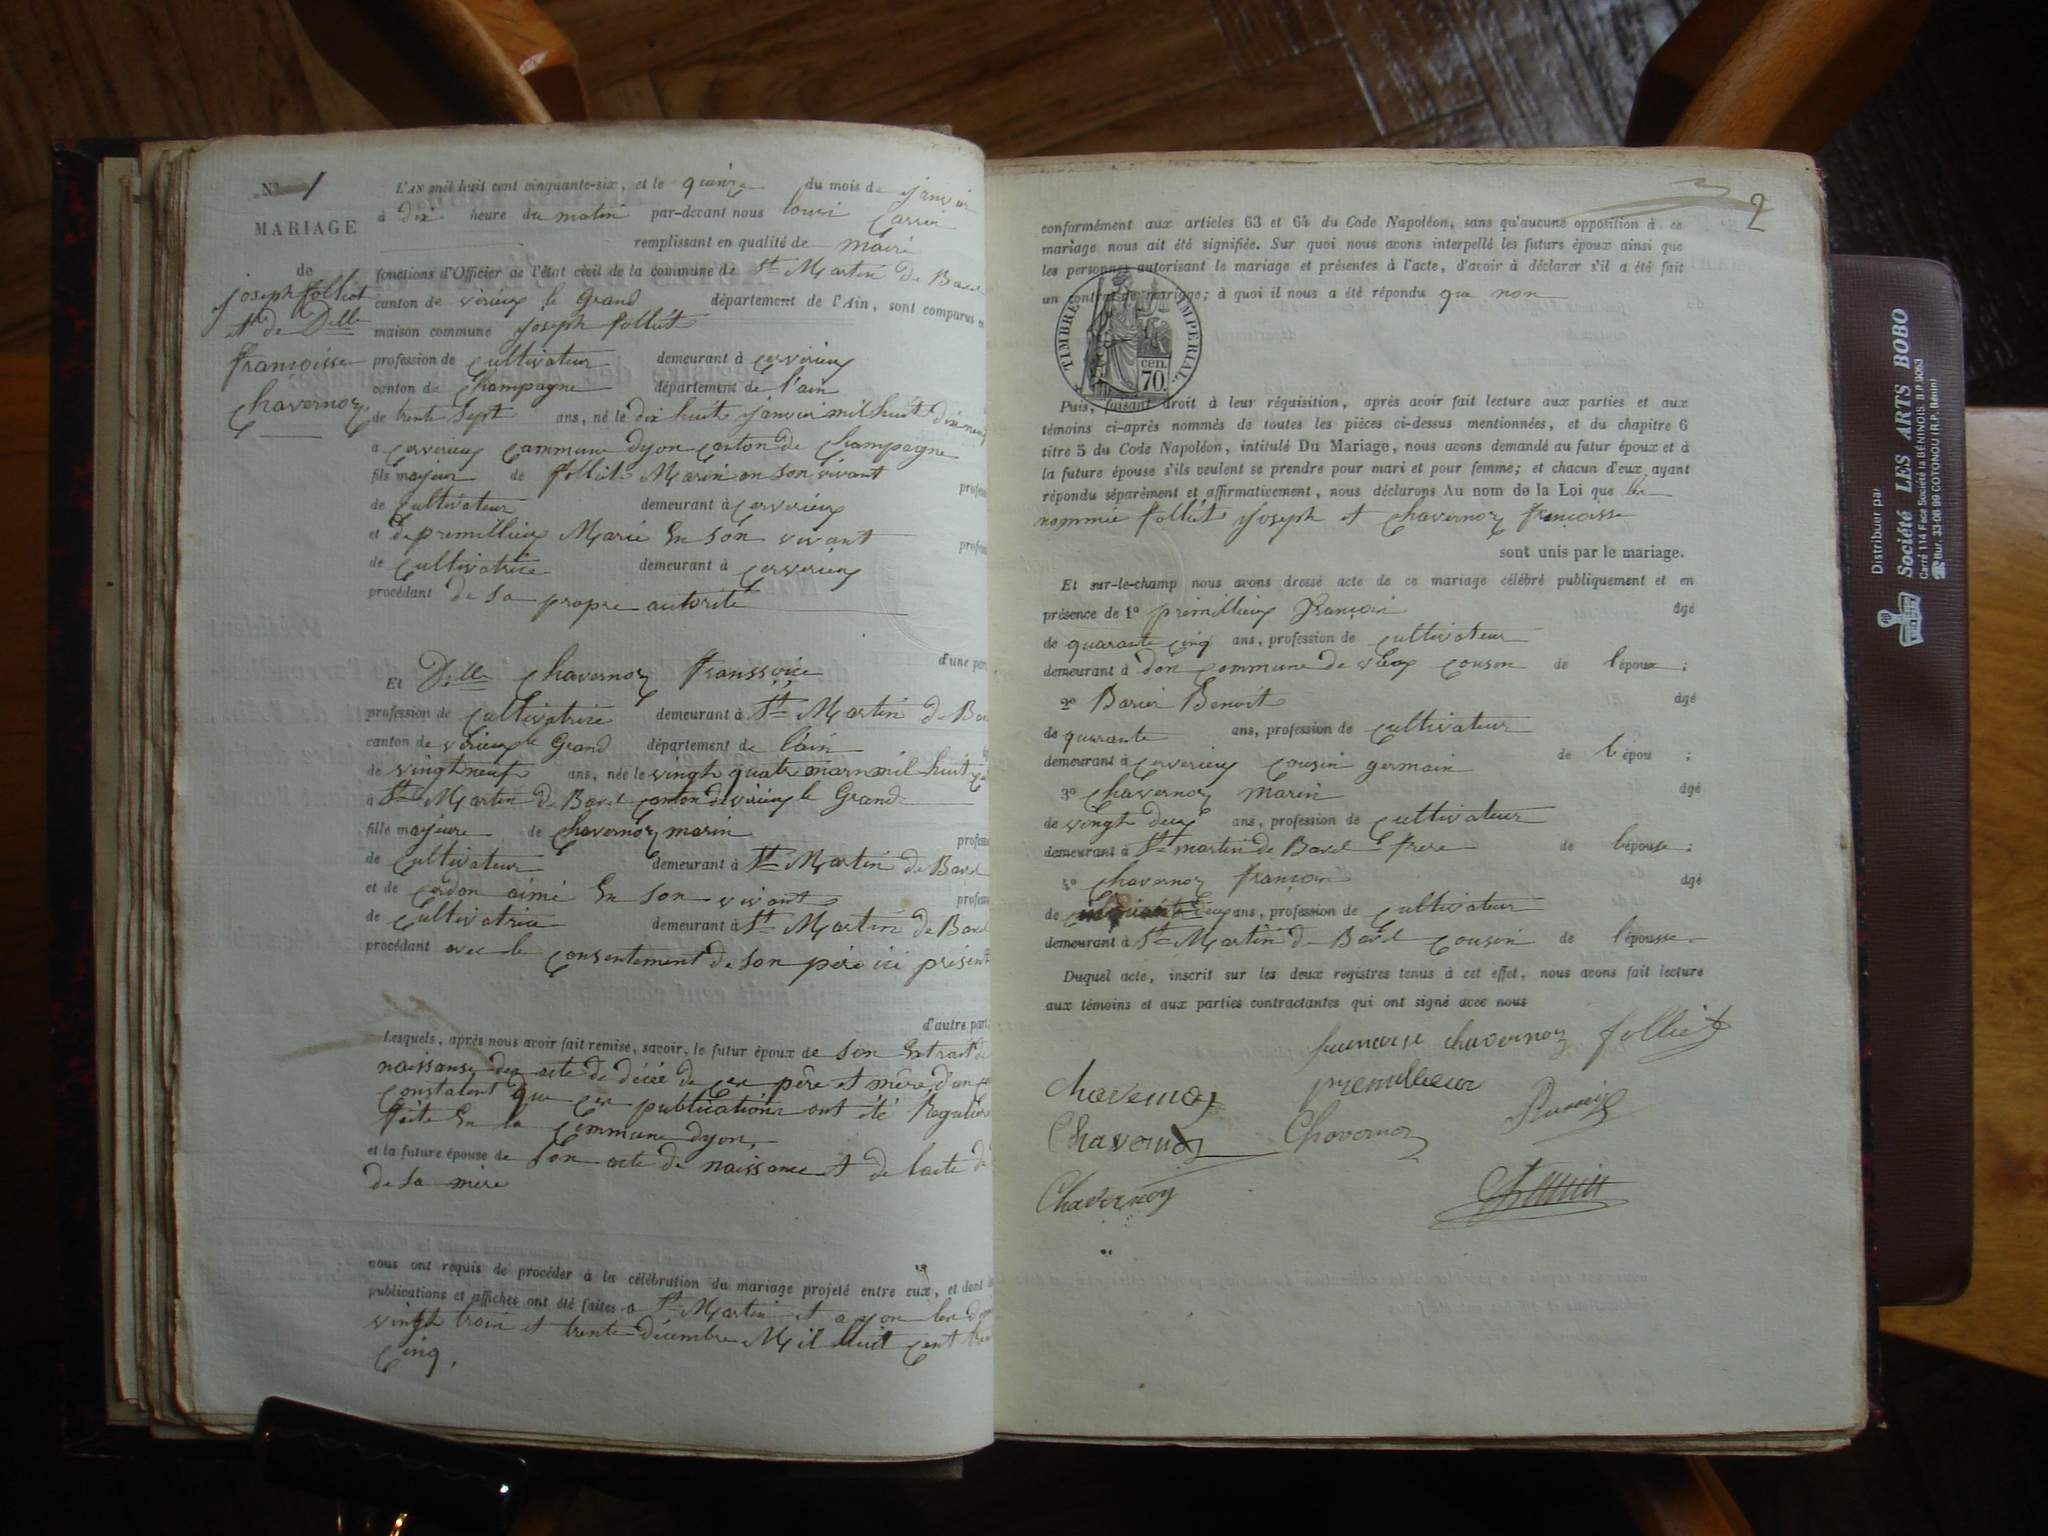 N° 1
MARIAGE
de
joseph folliet
et de Dlle
francoisse
Chavernoz
L'AN mil huit cent cinquante-six, et le quinze du mois de janvier
à dix heure du matin par-devant nous louis
remplissant en qualité de maire
fonctions d'Officier de l'état civil de la commune de St Martin De Bavel
canton de virieux le Grand département de l'Ain, sont comparus en
maison commune joseph folliet
profession de Cultivateur demeurant à Cerverieux
canton de Champagne département de l'ain
de trente sept ans, né le dix huit janvier mil huit dix neuf
a Cerverieux Commune dyon Canton de Champagne
fils majeur de folliet Marin en son vivant profess
de Cultivateur demeurant à Cerverieux
et de premillieux Marie En son vivant profess
de Cultivatrice demeurant à Cerverieux
procédant de sa propre autorité
d'une part
Et Dlle Chavernoz franssoice
profession de Cultivatrice demeurant à St Martin De Bav
canton de virieux le Grand département de l'ain
de vingt neuf ans, née le vingt quatre mars mil huit
à St Martin De Bavel Canton de virieux le Grand
fille majeure de Chavernoz marin profess
de Cultivateur demeurant à St Martin De Bavel
et de Cerdon aimé En son vivant profess
de Cultivatrice demeurant à St Martin De Bavel
procédant avec le Consentement de son père ici présent
d'autre part
Lesquels, après nous avoir fait remise, savoir, le futur époux de son Extrait de
naissanse des acte de décée de Ces père et mère, d'un
Constatent que Ces publications ont été Regulière
faite En la Commune dyon.
et la future épouse de son acte de naissance et de lacte de
de sa mère
nous ont requis de procéder à la célébration du mariage projeté entre eux, et dont
publications et affiches ont été faites a St Martin et a yon les
vingt trois et trente décembre Mil Huit Cent
Cinq.
2
conformément aux articles 63 et 64 du Code Napoléon, sans qu'aucune opposition à ce
mariage nous ait été signifiée. Sur quoi nous avons interpellé les futurs époux ainsi que
les personnes autorisant le mariage et présentes à l'acte, d'avoir à déclarer s'il a été fait
un contrat de mariage; à quoi il nous a été répondu que non
TIMBRE IMPÉRIAL
cen.
70.
Puis, faisant droit à leur réquisition, après avoir fait lecture aux parties et aux
témoins ci-après nommés de toutes les pièces ci-dessus mentionnées, et du chapitre 6
titre 5 du Code Napoléon, intitulé Du Mariage, nous avons demandé au futur époux et à
la future épouse s'ils veulent se prendre pour mari et pour femme; et chacun d'eux ayant
répondu séparément et affirmativement, nous déclarons Au nom de la Loi que les
nommée folliet joseph et Chavernoz françoisse
sont unis par le mariage.
Et sur-le-champ nous avons dressé acte de ce mariage célébré publiquement et en
présence de 1° premillieux françois âgé
de quarante Cinq ans, profession de Cultivateur
demeurant à don Commune de vieux Couson de l'époux ;
2° Barier Benoit âgé
de quarante ans, profession de Cultivateur
demeurant à Cerverieux Cousin germain de l'épou ;
3° Chavernoz marin âgé
de vingt deux ans, profession de Cultivateur
demeurant à St martin de Bavel frere de l'épouse ;
4° Chavernoz françois âgé
de Cinquante deux ans, profession de Cultivateur
demeurant à St Martin De Bavel Cousin de l'épousse
Duquel acte, inscrit sur les deux registres tenus à cet effet, nous avons fait lecture
aux témoins et aux parties contractantes qui ont signé avec nous
chavernoz folliet
chavernoz premillieux
Chavernoz Chavernoz
Chavernoy
Distribuer par
Société LES ARTS BOBO
Carré 114 Face Société la BÉNINOIS. B.P. 9063
Bur. 33-06 99 COTONOU (R.P. Bénin)